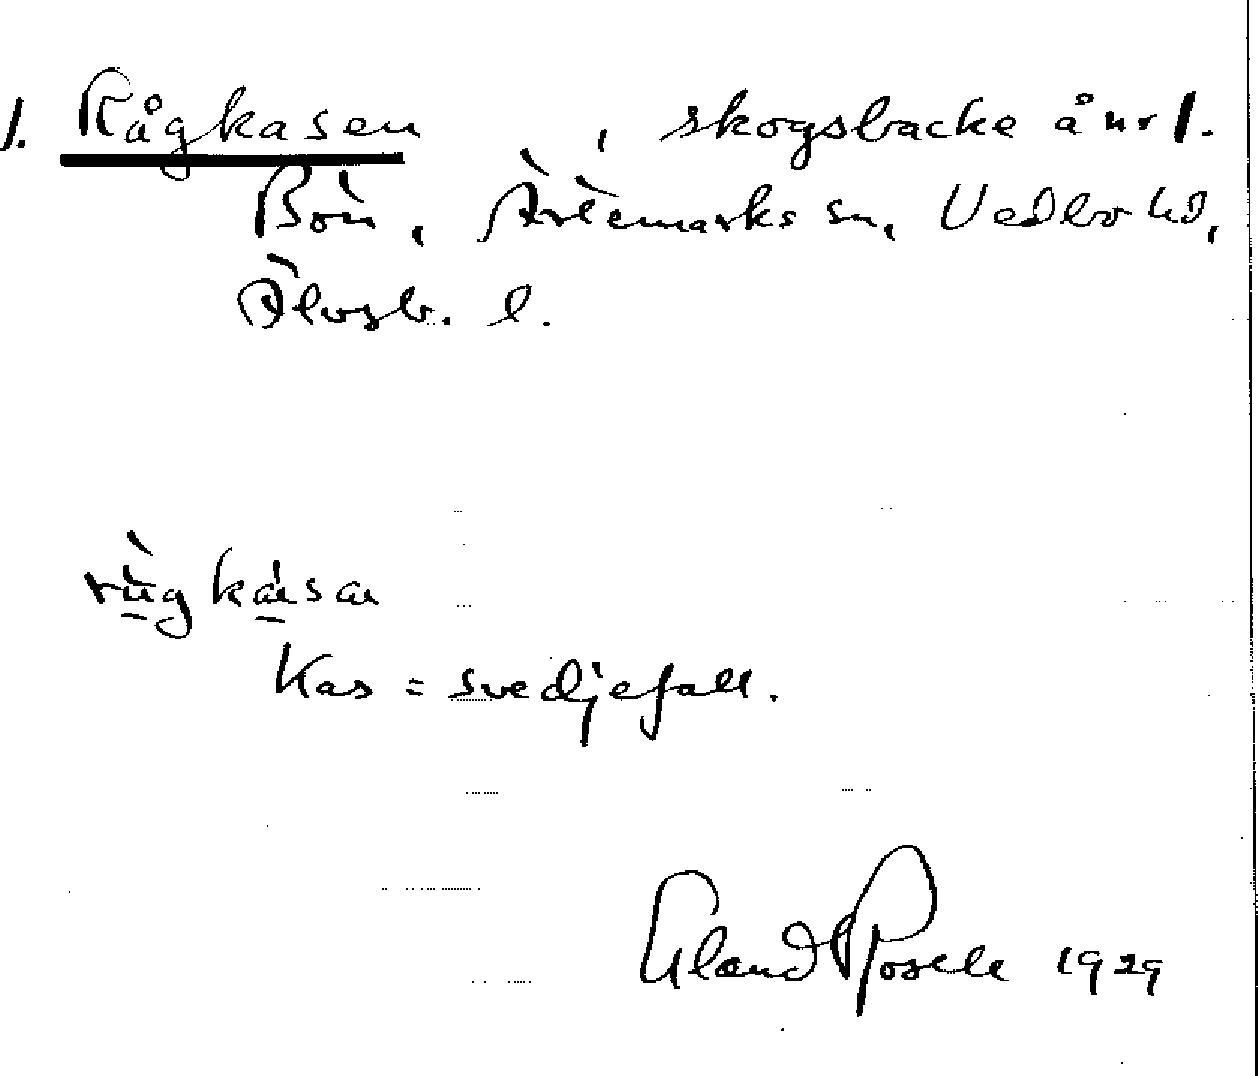 1. Rågkasen , skogsbacke å nr 1.
Bön, Ärtemarks sn, Vedbo hd,
Älvsb. l.
rùgkàsa
Kas = svedjefall.
Erland Rosell 1929